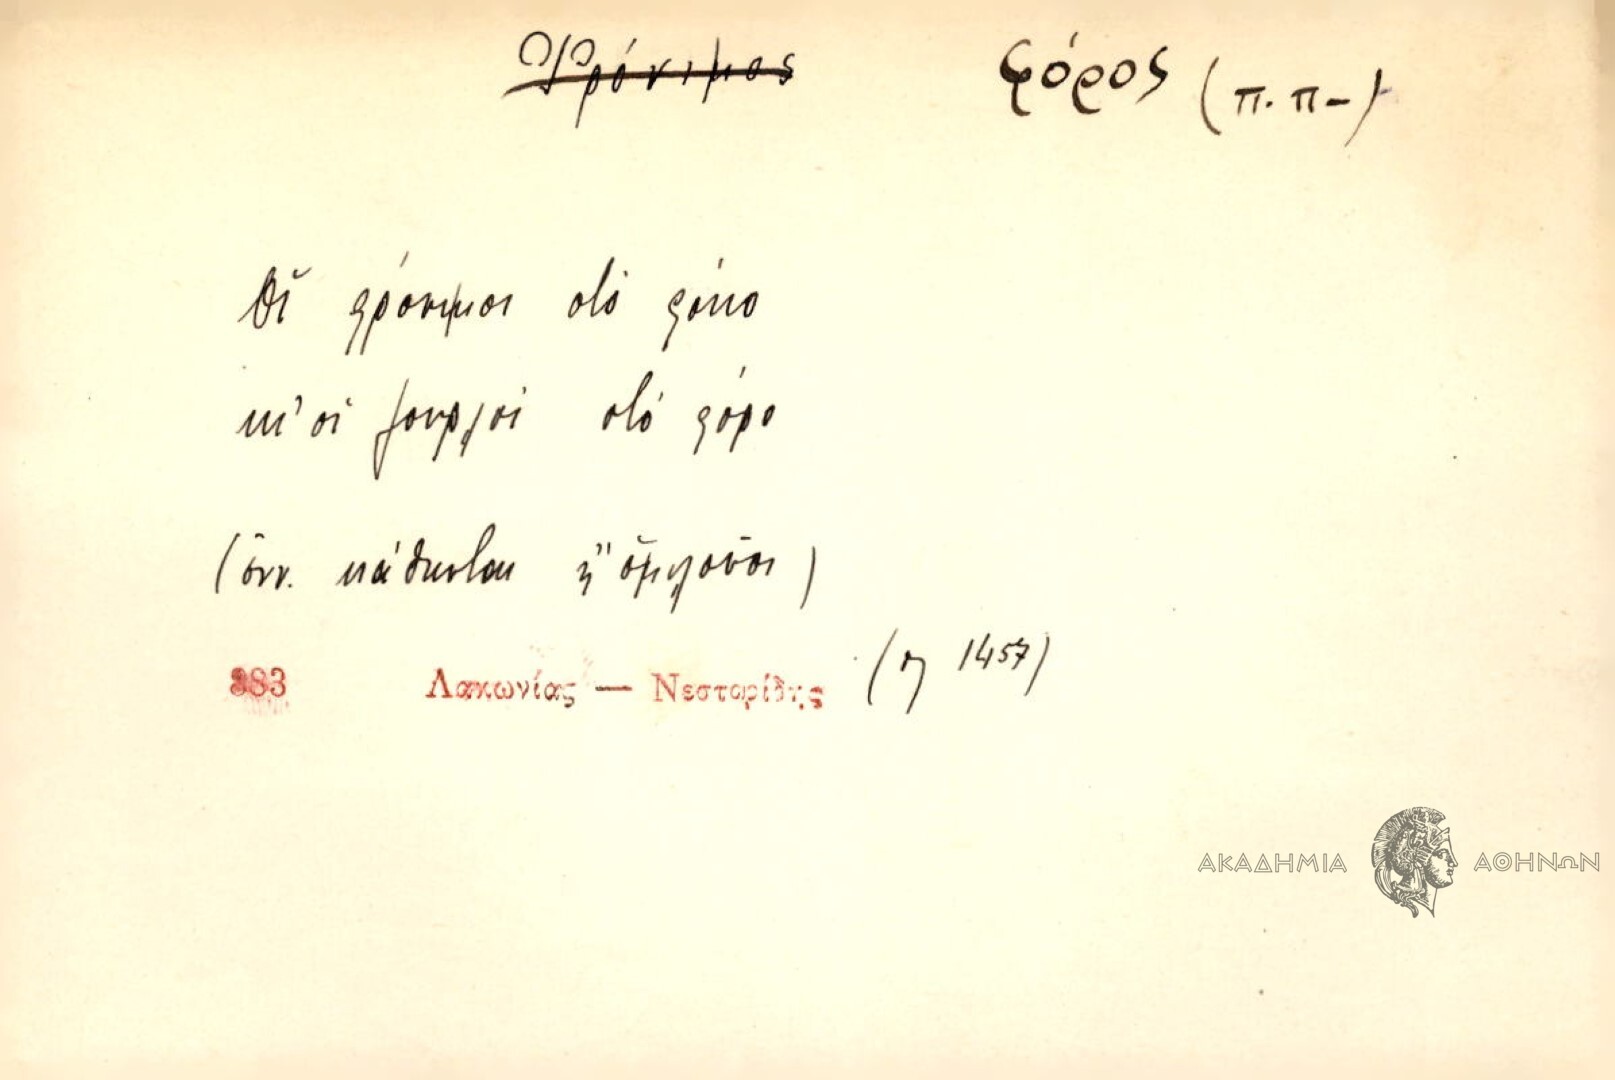 Φρόνιμος φόρος (π. π-)
Οἱ φρόνιμοι στὸ φόκο
κι' οἱ ζουρλοὶ στὸ φόρο
(ἐνν. κάθονται ἢ ὁμιλοῦσι)
383 Λακωνίας — Νεστορίδης (η 1457)
ΑΚΑΔΗΜΙΑ ΑΘΗΝΩΝ